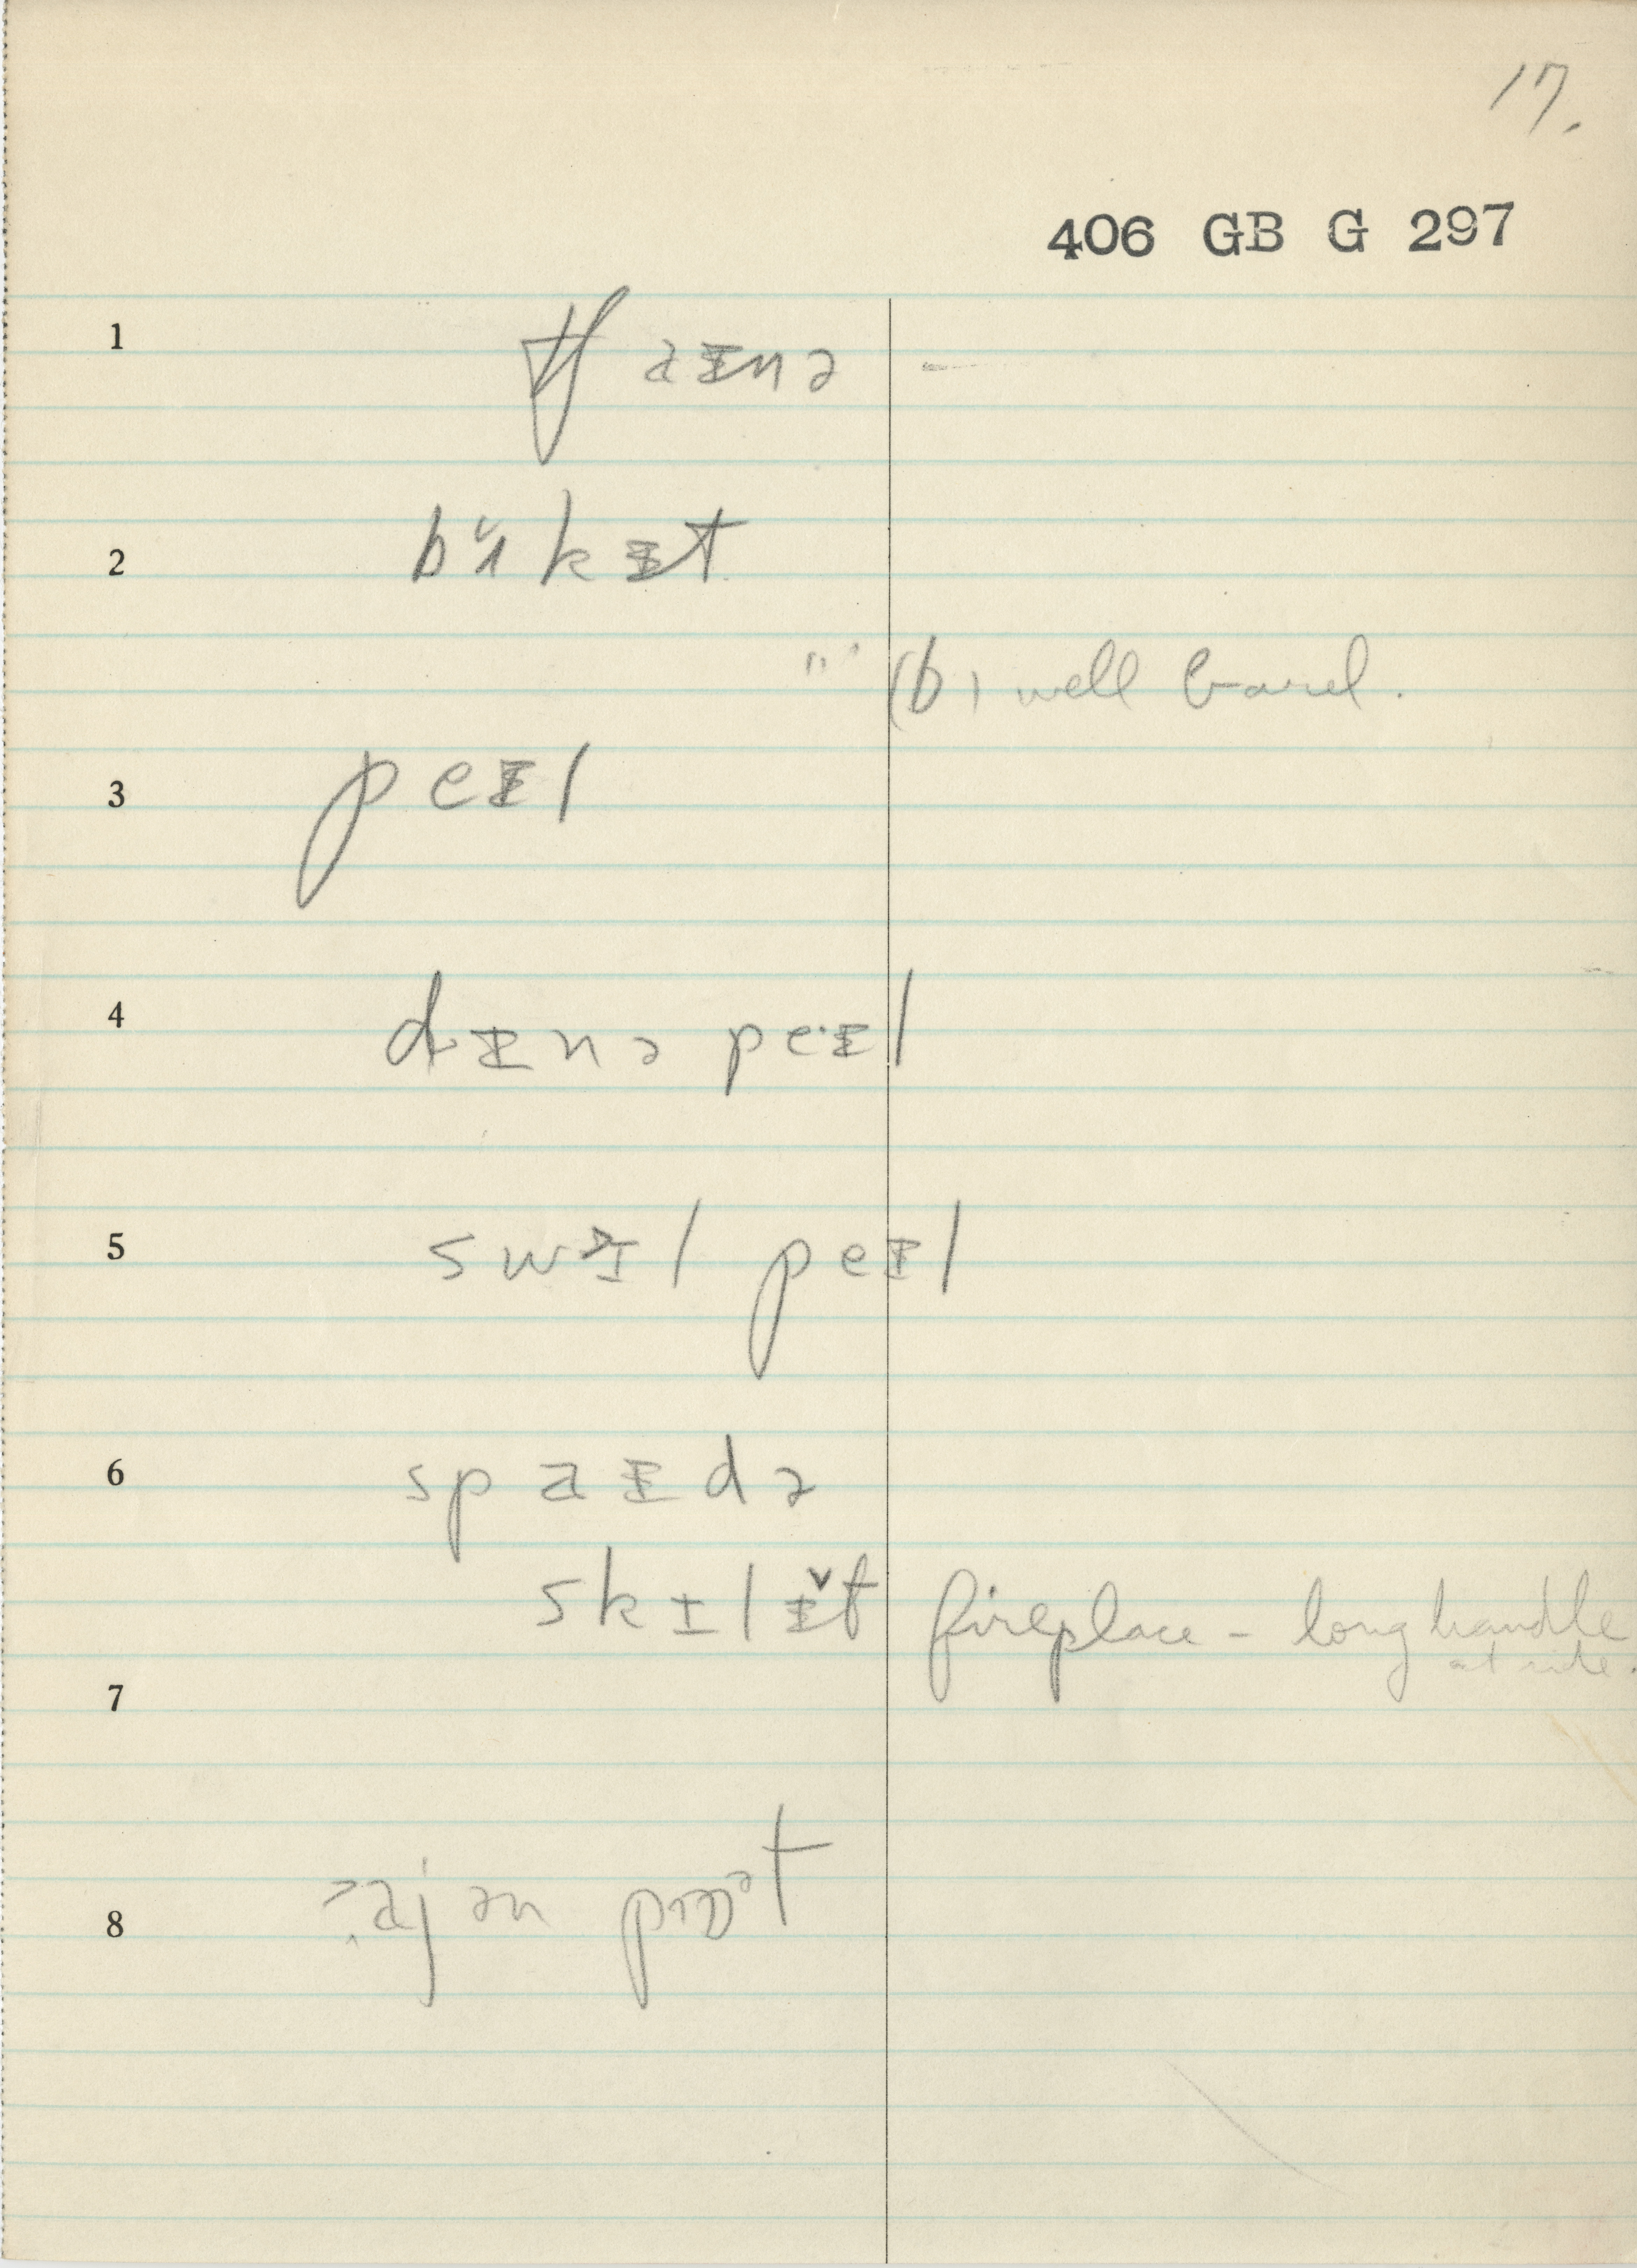 17.
406 GB G 297
1 tʃ aɪnə -
2 bʌ̆kɪt
"" (b) well barrel.
3 peɪl
4 dɪnə peˑɪl
5 swɪl peɪl
6 spaɪdə
skɪlɪ̆t fireplace - long handle
at side.
7
8